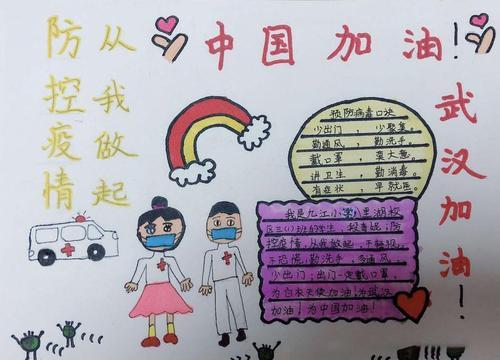 中国加油!
防控疫情
从我做起
武汉加油!
预防病毒口诀
少出门，少聚集。
勤通风，勤洗手。
戴口罩，莫大意。
讲卫生，勤消毒。
有症状，早就医。
我是九江小学八里湖校
区三(1)班的学生，防
控疫情，从我做起，不轻视，
不恐慌，勤洗手，多通风，
少出门；出门一定戴口罩，
为白衣天使加油，为武汉
加油！为中国加油！